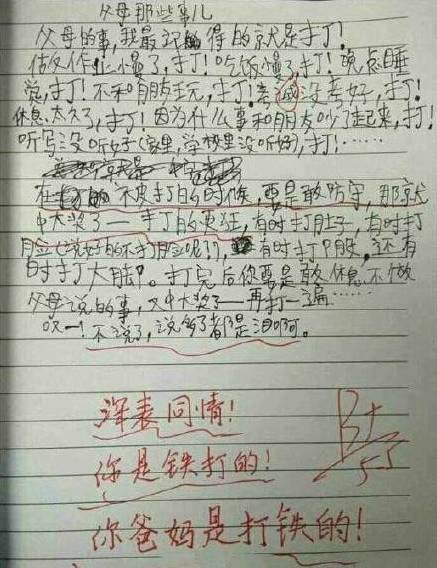 父母那些事儿
父母的事,我最记得的就是打!
作业慢了,打!吃饭慢了,打!晚点睡
觉,打!不和朋友玩,打!考试没考好,打!
休息太久了,打!因为什么事和朋友吵了起来,打!
听写没听好(家里,学校里没听好),打!……
在被打的时候,要是敢防守,那就
中大奖了——打的更狂,有时打肚子,有时打
脸(说好的不打脸呢?!),有时打PP股,还有
时打大腿。打完后你要是敢休息不做
父母说的事,又中大奖了——再打一遍……
哎!不说了,说多了都是泪啊。
深表同情!
你是铁打的!
B+
你爸妈是打铁的!